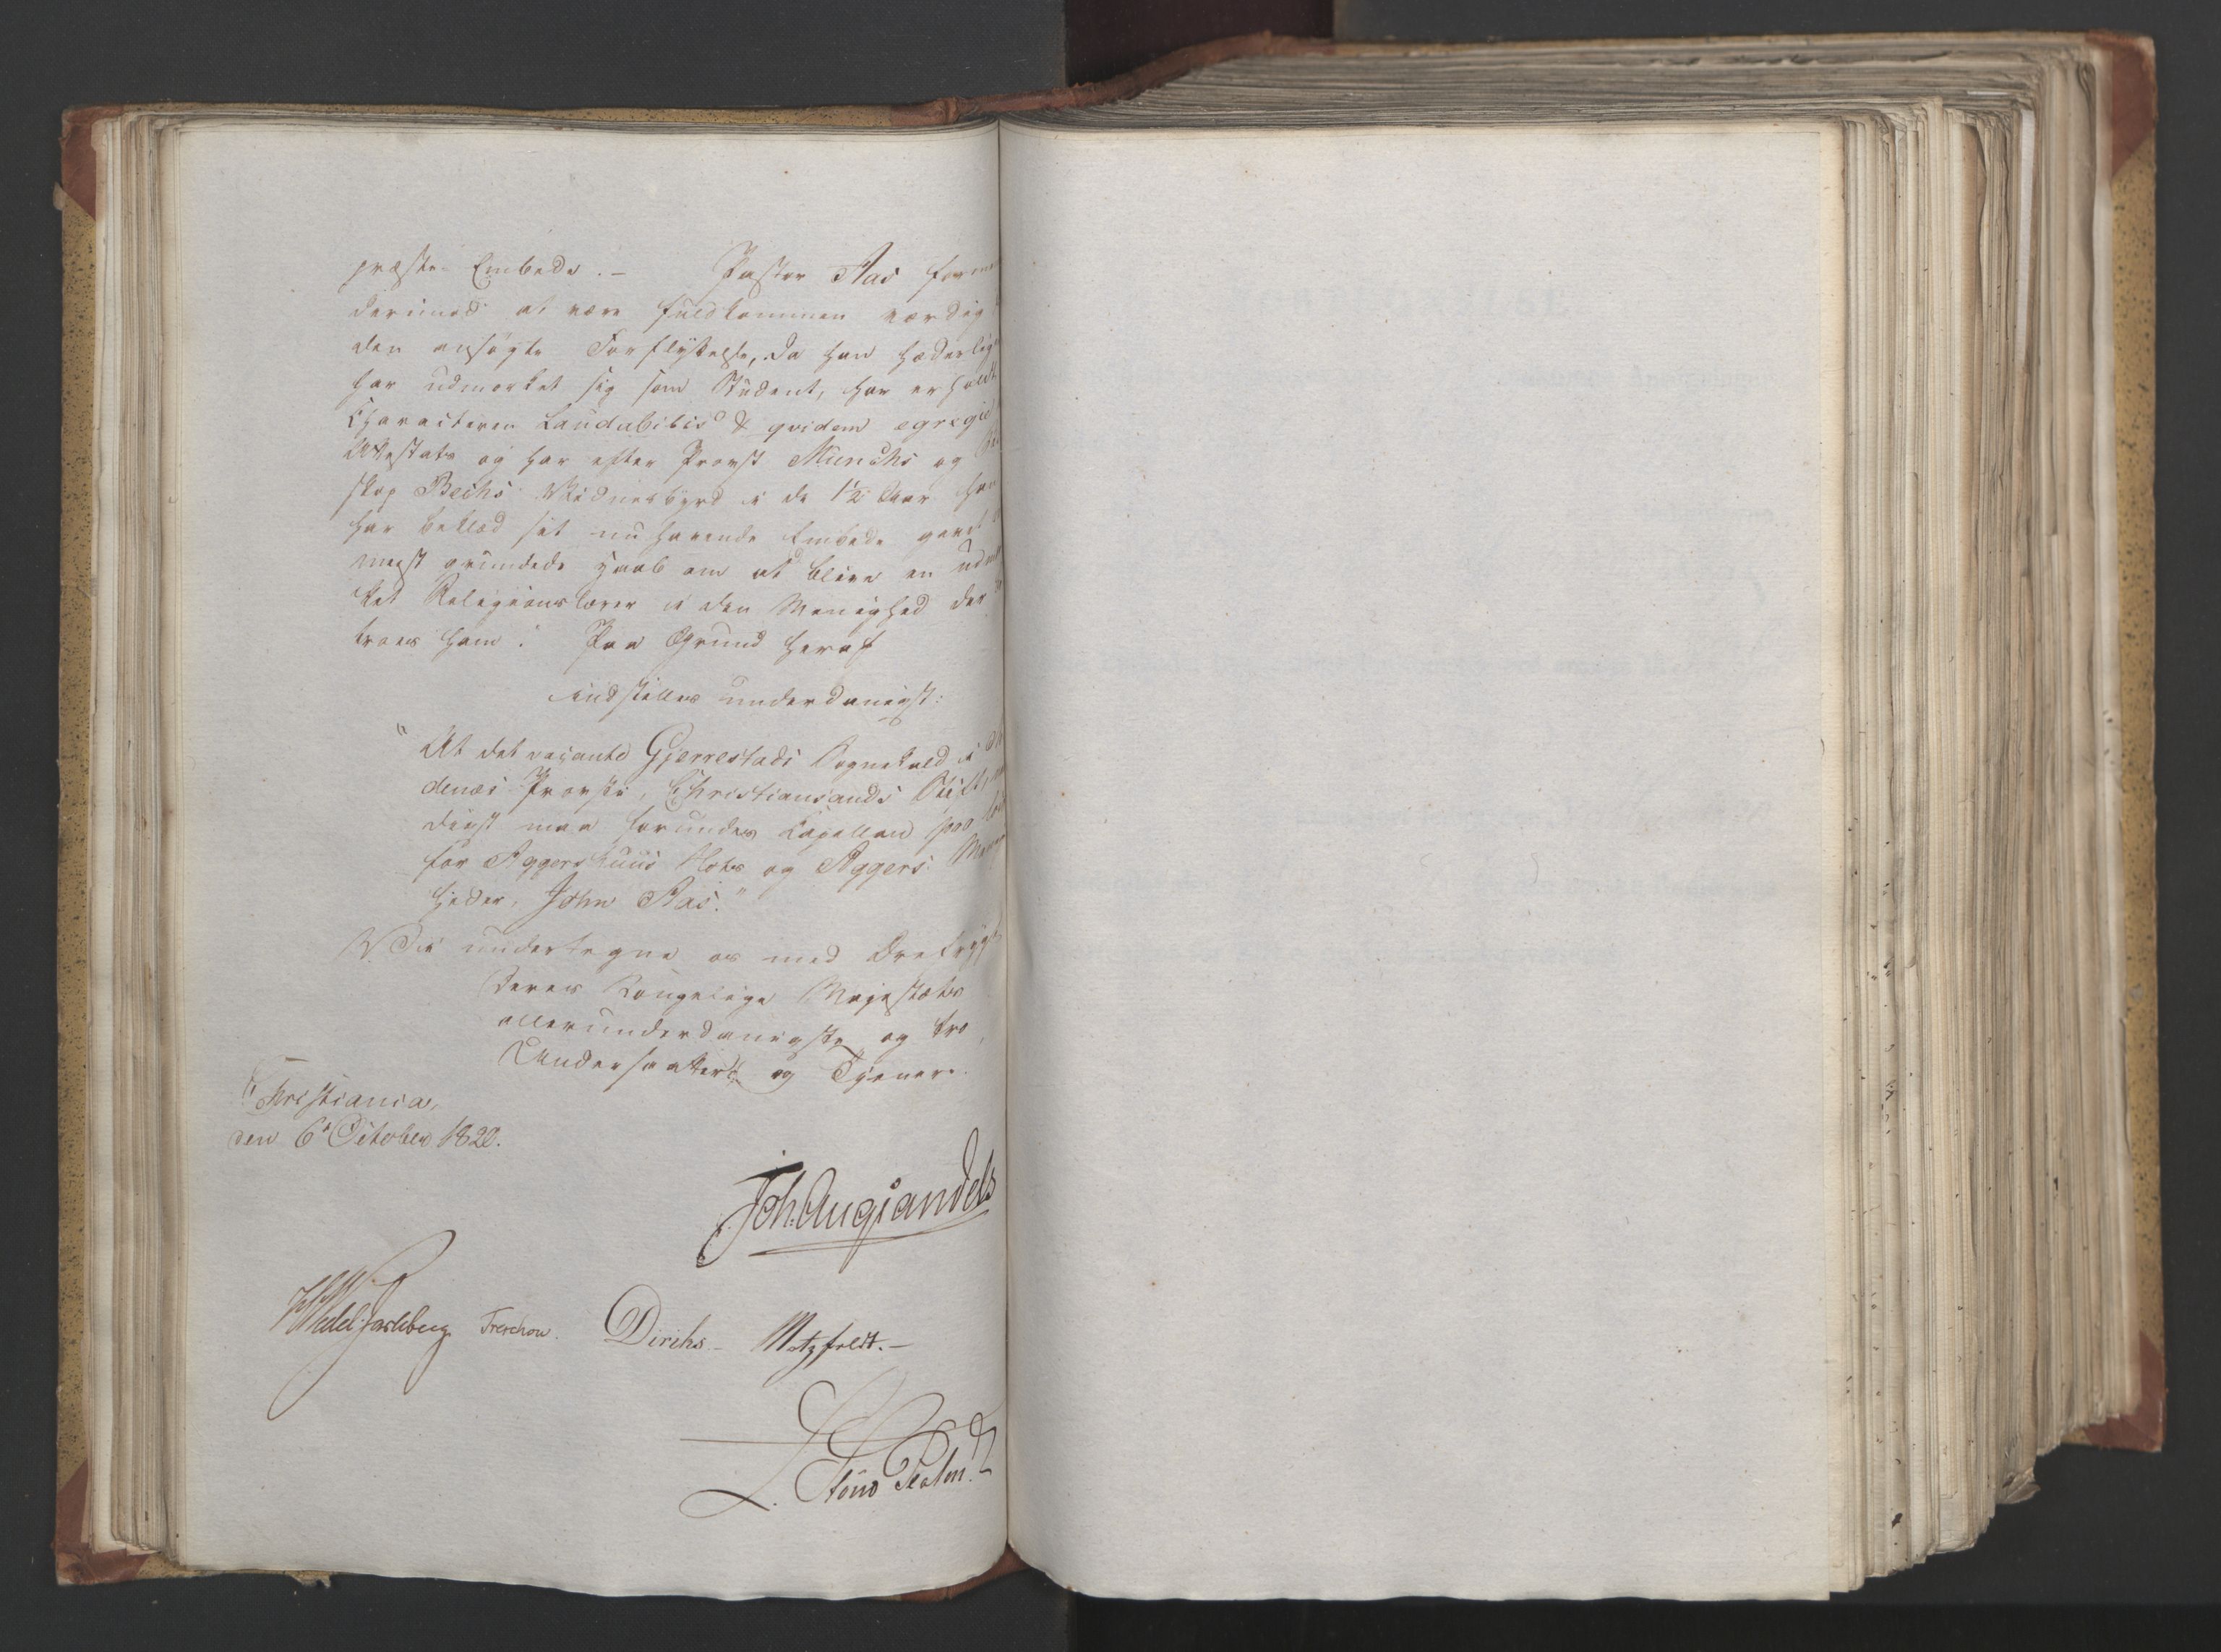 præste-Embede. – Pastor Aas form
derimod at være fuldkommen værdig
den ansøgte Forflyttelse, da han hæderlig
har udmærket sig som Student, har erholdt
Characteren Laudabilis & qvidem egregie
Attestats og har efter Provst Munchs og Bi
skop Bechs Vidnesbyrd i de 1½ Aar han
har beklæd sit nu havende Embede givet
meest grundede Haab om at blive en udmær
ket Religionslærer i den Menighed der
troes ham. Paa Grund heraf
indstilles underdanigst:
"At det vacante Gjerrestads Sognekald i
denæs Provstie, Christiansands Stift,
digst maa forundes Capellan pro
for Aggershuus Slots og Aggers Me
heder, John Aas."
Vi undertegne os med Ærefrygt
Deres Kongelige Majestæts
allerunderdanigste og tro
Undersaatter og Tjenere.
Christiania,
den 6te October 1820.
Joh. Aug Sandels
HWedel Jarlsberg Treschow. Diriks – Motzfeldt. –
L. Stoud Platou